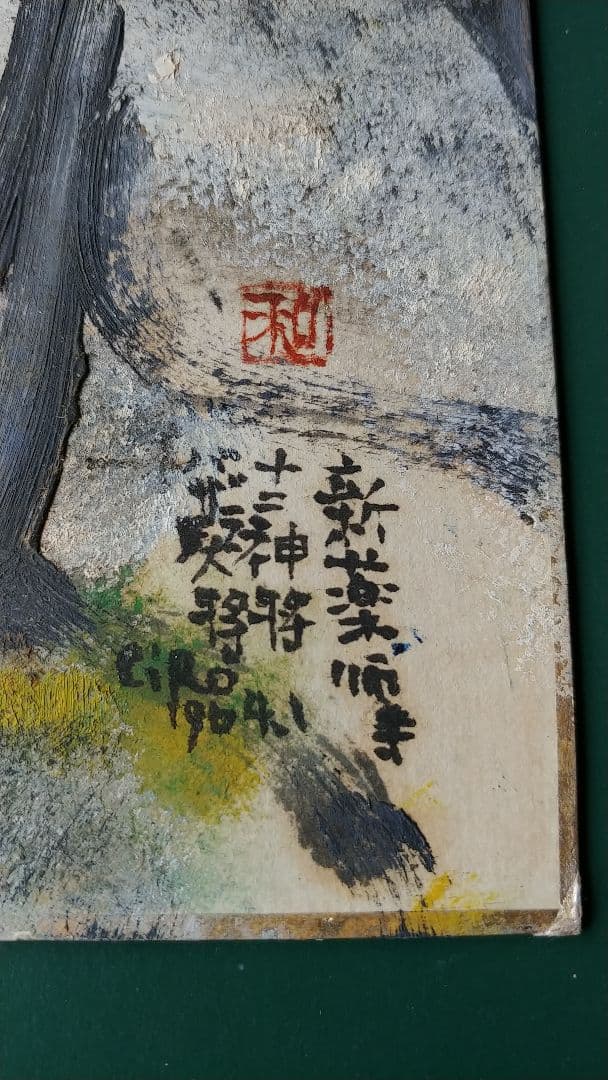 和
新薬師寺
十二神将
バザラ大将